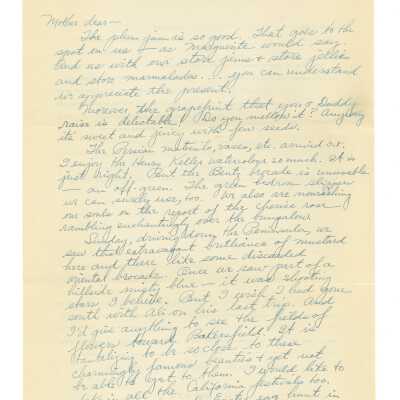 Mother dear—
The plum jam is so good. That goes to the
spot in us — as Marguerite would say.
And us with our store jams & store jellies
and store marmalades... you can understand
we appreciate the present.
Moreover the grapefruit that you & Daddy
raise is delectable. Do you mellow it? Anyway
its sweet and juicy with few seeds.
The Persian materials, vases, etc. arrived o.k.
I enjoy the Henry Keller watercolor so much. It is
just right. But the brocade is unusable
— an off-green. The green bedroom slippers
we can surely use, too. We also are nourishing
our souls on the report of the cherokee rose
rambling enchantingly over the bungalow.
Sunday, driving along the Peninsula, we
saw that extravagant brilliance of mustard
here and there like some discarded
oriental brocade. Once we saw part of a
hillside misty blue — it was shooting
stars, I believe. But I wish I had gone
south with Ali on his last trip. And
I'd give anything to see the fields of
flowers toward Bakersfield. It is
tantalizing to be so close to these
charmingly famous beauties & yet not
be able to get to them. I would like to
in all the California festivals too.